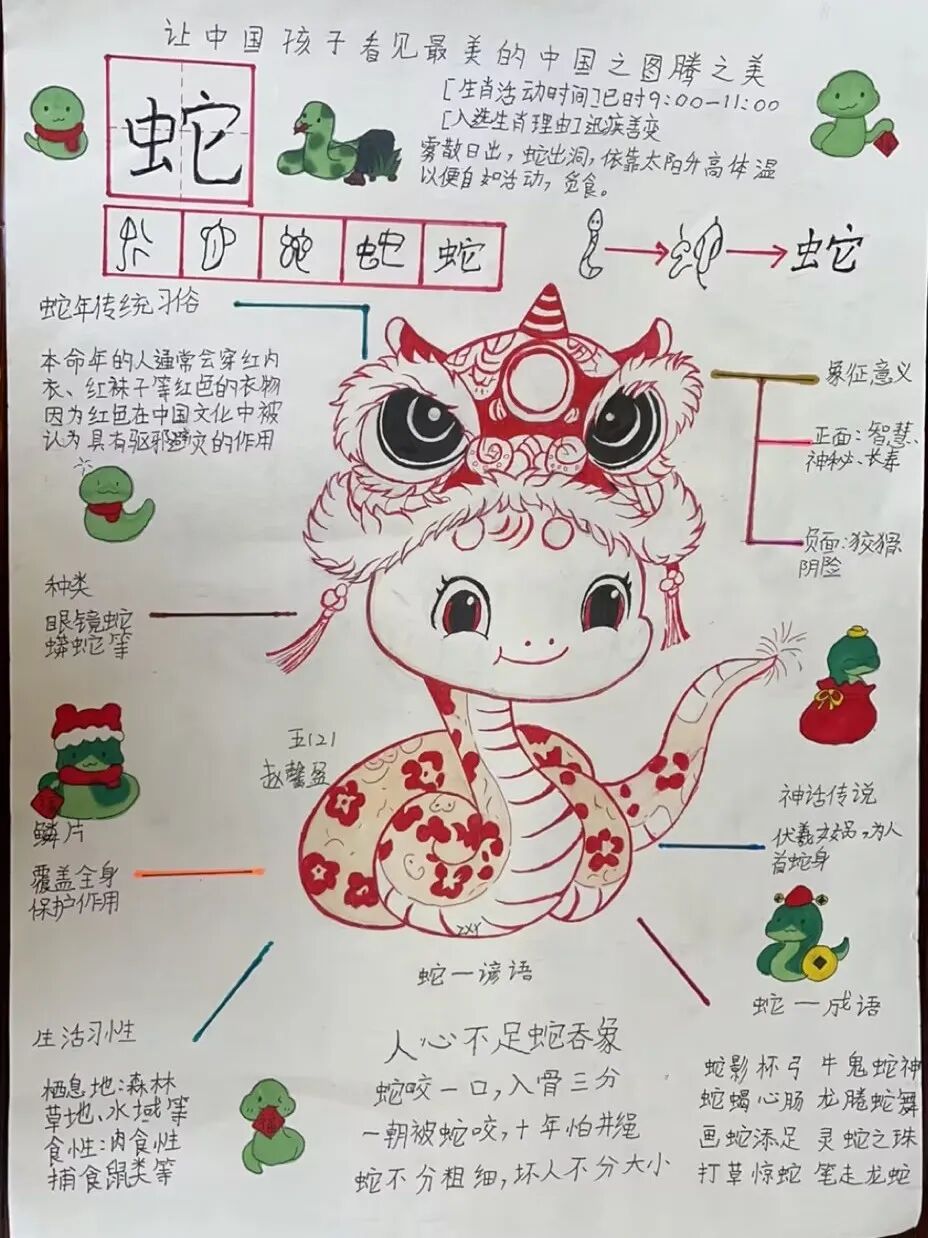 让中国孩子看见最美的中国之图腾之美
蛇
[生肖活动时间]巳时9:00-11:00
[入选生肖理由]迅疾善变
雾散日出，蛇出洞，依靠太阳升高体温
以便自如活动，觅食。
蛇
蛇
蛇年传统习俗
本命年的人通常会穿红内
衣、红袜子等红色的衣物
因为红色在中国文化中被
认为具有驱邪避灾的作用
象征意义
正面：智慧、
神秘、长寿
负面：狡猾
阴险
种类
眼镜蛇
蟒蛇等
五(2)
赵馨盈
鳞片
覆盖全身
保护作用
神话传说
伏羲女娲，为人
首蛇身
ZXY
蛇一谚语
人心不足蛇吞象
蛇咬一口，入骨三分
一朝被蛇咬，十年怕井绳
蛇不分粗细，坏人不分大小
蛇一成语
蛇影杯弓 牛鬼蛇神
蛇蝎心肠 龙腾蛇舞
画蛇添足 灵蛇之珠
打草惊蛇 笔走龙蛇
生活习性
栖息地：森林
草地、水域等
食性：肉食性
捕食鼠类等